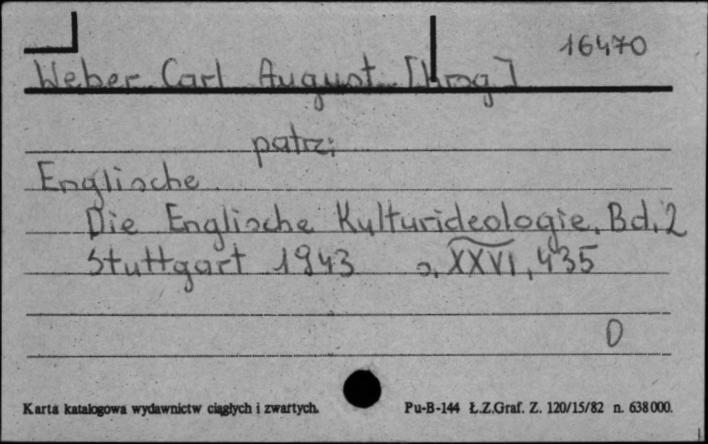 16470
Weber Carl August [Hrsg]
patrz:
Englische
Die Englische Kulturideologie. Bd. 2
Stuttgart 1943 s. XXVI, 435
0
Karta katalogowa wydawnictw ciągłych i zwartych. Pu-B-144 Ł.Z.Graf. Z. 120/15/82 n. 638000.